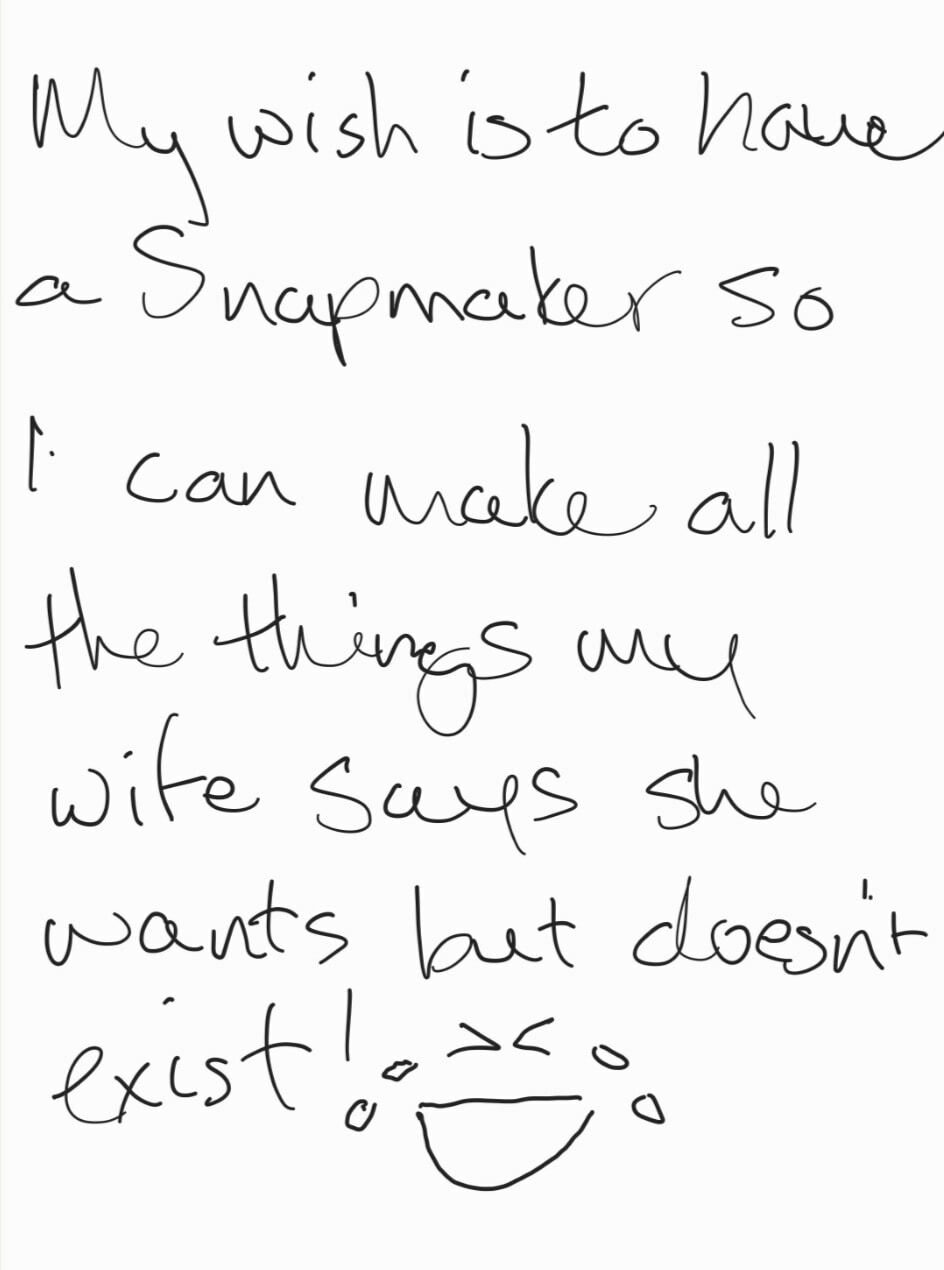 My wish is to have
a Snapmaker so
I can make all
the things my
wife says she
wants but doesn't
exist!